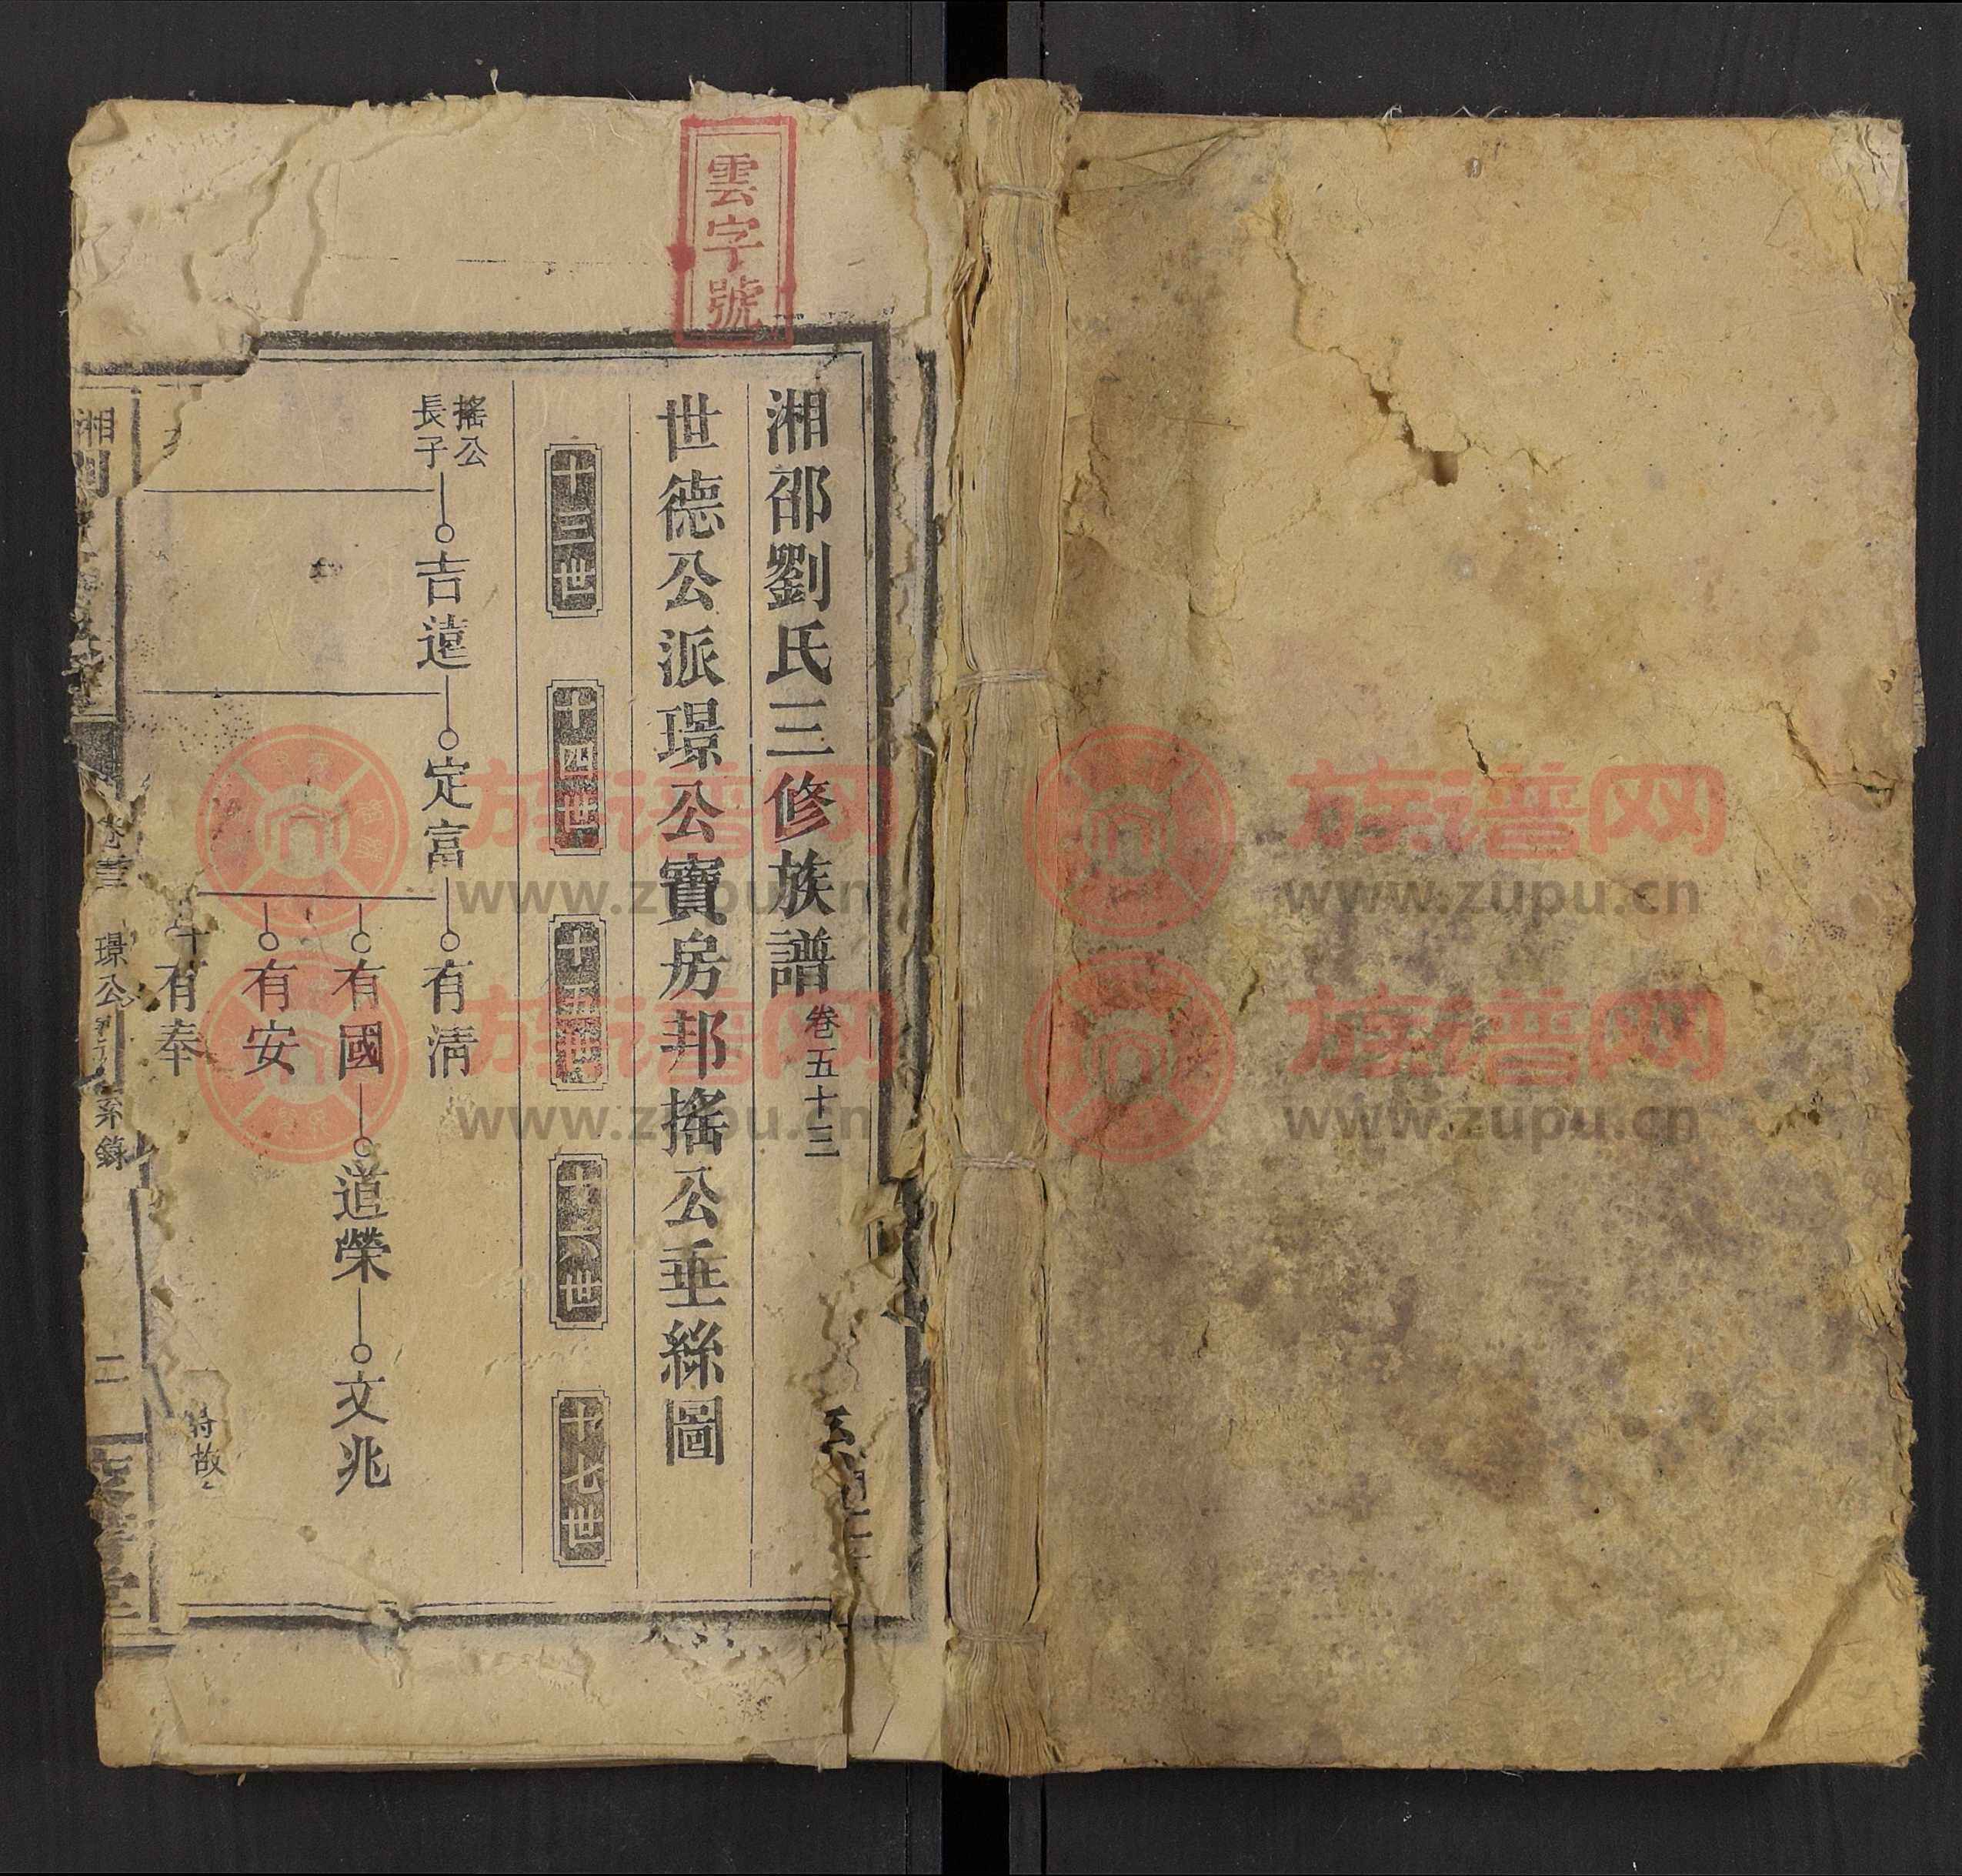 雲字號
湘邵劉氏三修族譜 卷五十三
世德公派璟公寶房邦搖公垂絲圖
十三世
十四世
十五世
十六世
十七世
搖公
長子
吉遠
定富
有清
有國
道榮
文兆
有安
有奉
湘劉
璟公
系錄
二
族谱网
www.zupu.cn
族谱网
www.zupu.cn
族谱网
www.zupu.cn
族谱网
www.zupu.cn